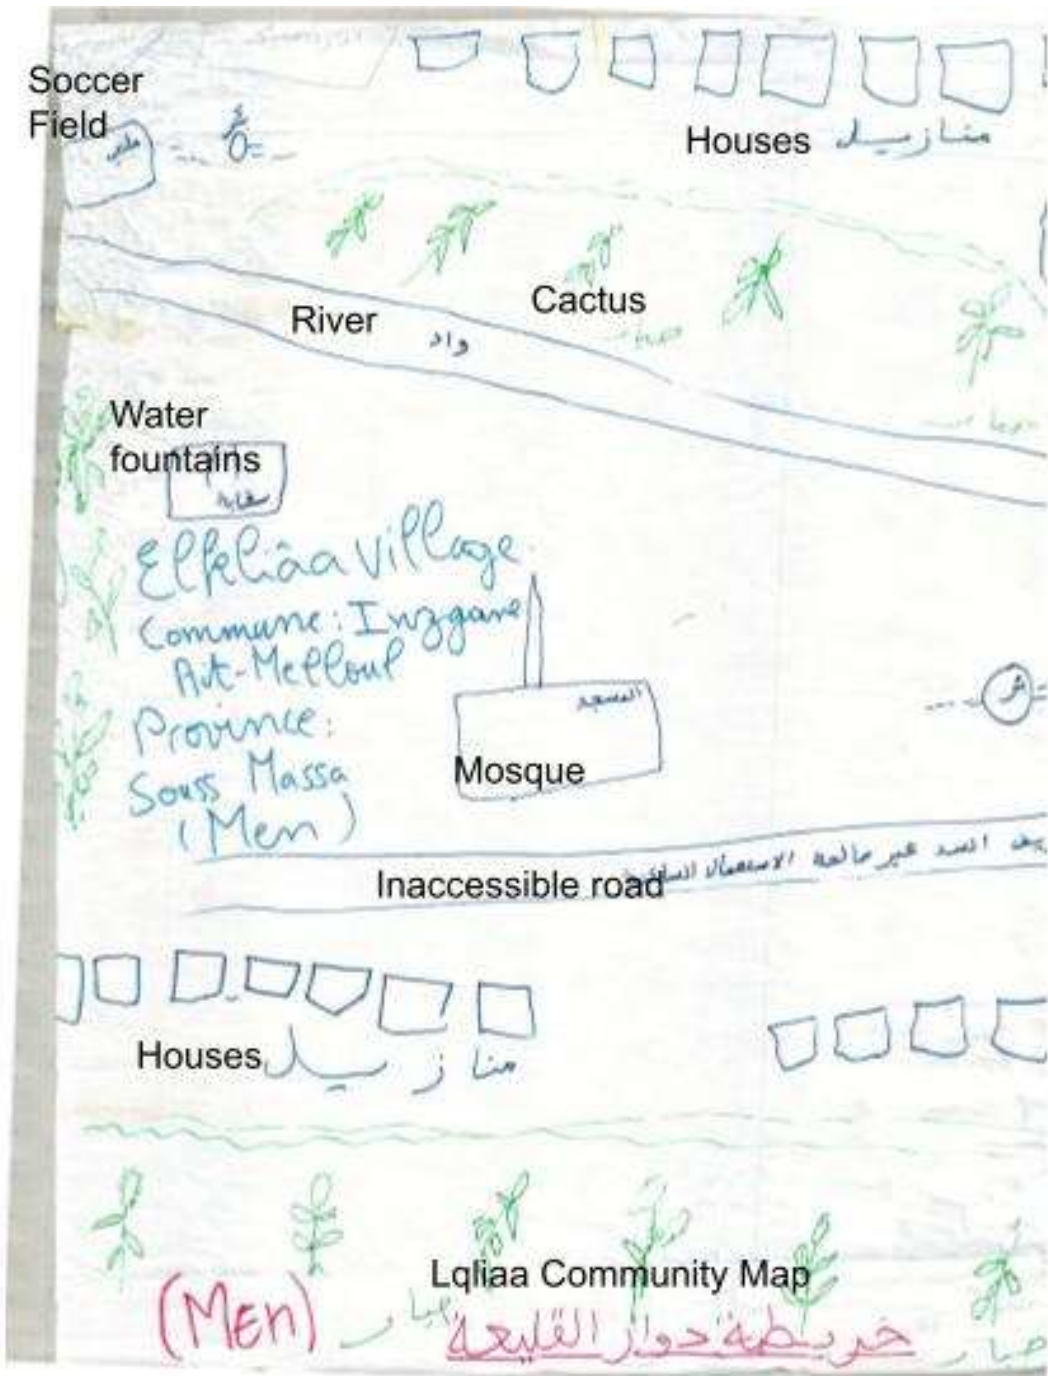 Soccer
Field
ملعب
Houses منازيل
Cactus
River واد
Water
fountains
سقاية
Elkeliâa Village
Commune: Inzgane
Ait-Melloul
Province:
Souss Massa
(Men)
المسجد
Mosque
Inaccessible road
السد غير صالحة الاستعمال
Houses منازيل
Lqliaa Community Map
صبار
(MEn)
خريطة دوار القليعة
صبار